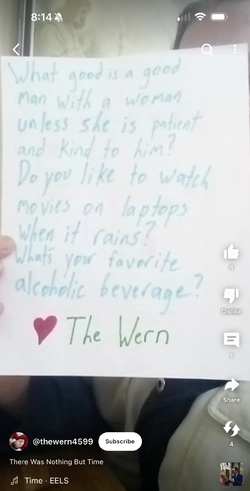 8:14
What good is a good
man with a woman
unless she is patient
and kind to him?
Do you like to watch
movies on laptops
when it rains?
Whats your favorite
alcoholic beverage?
The Wern
Dislike
Share
@thewern4599
Subscribe
There Was Nothing But Time
Time · EELS